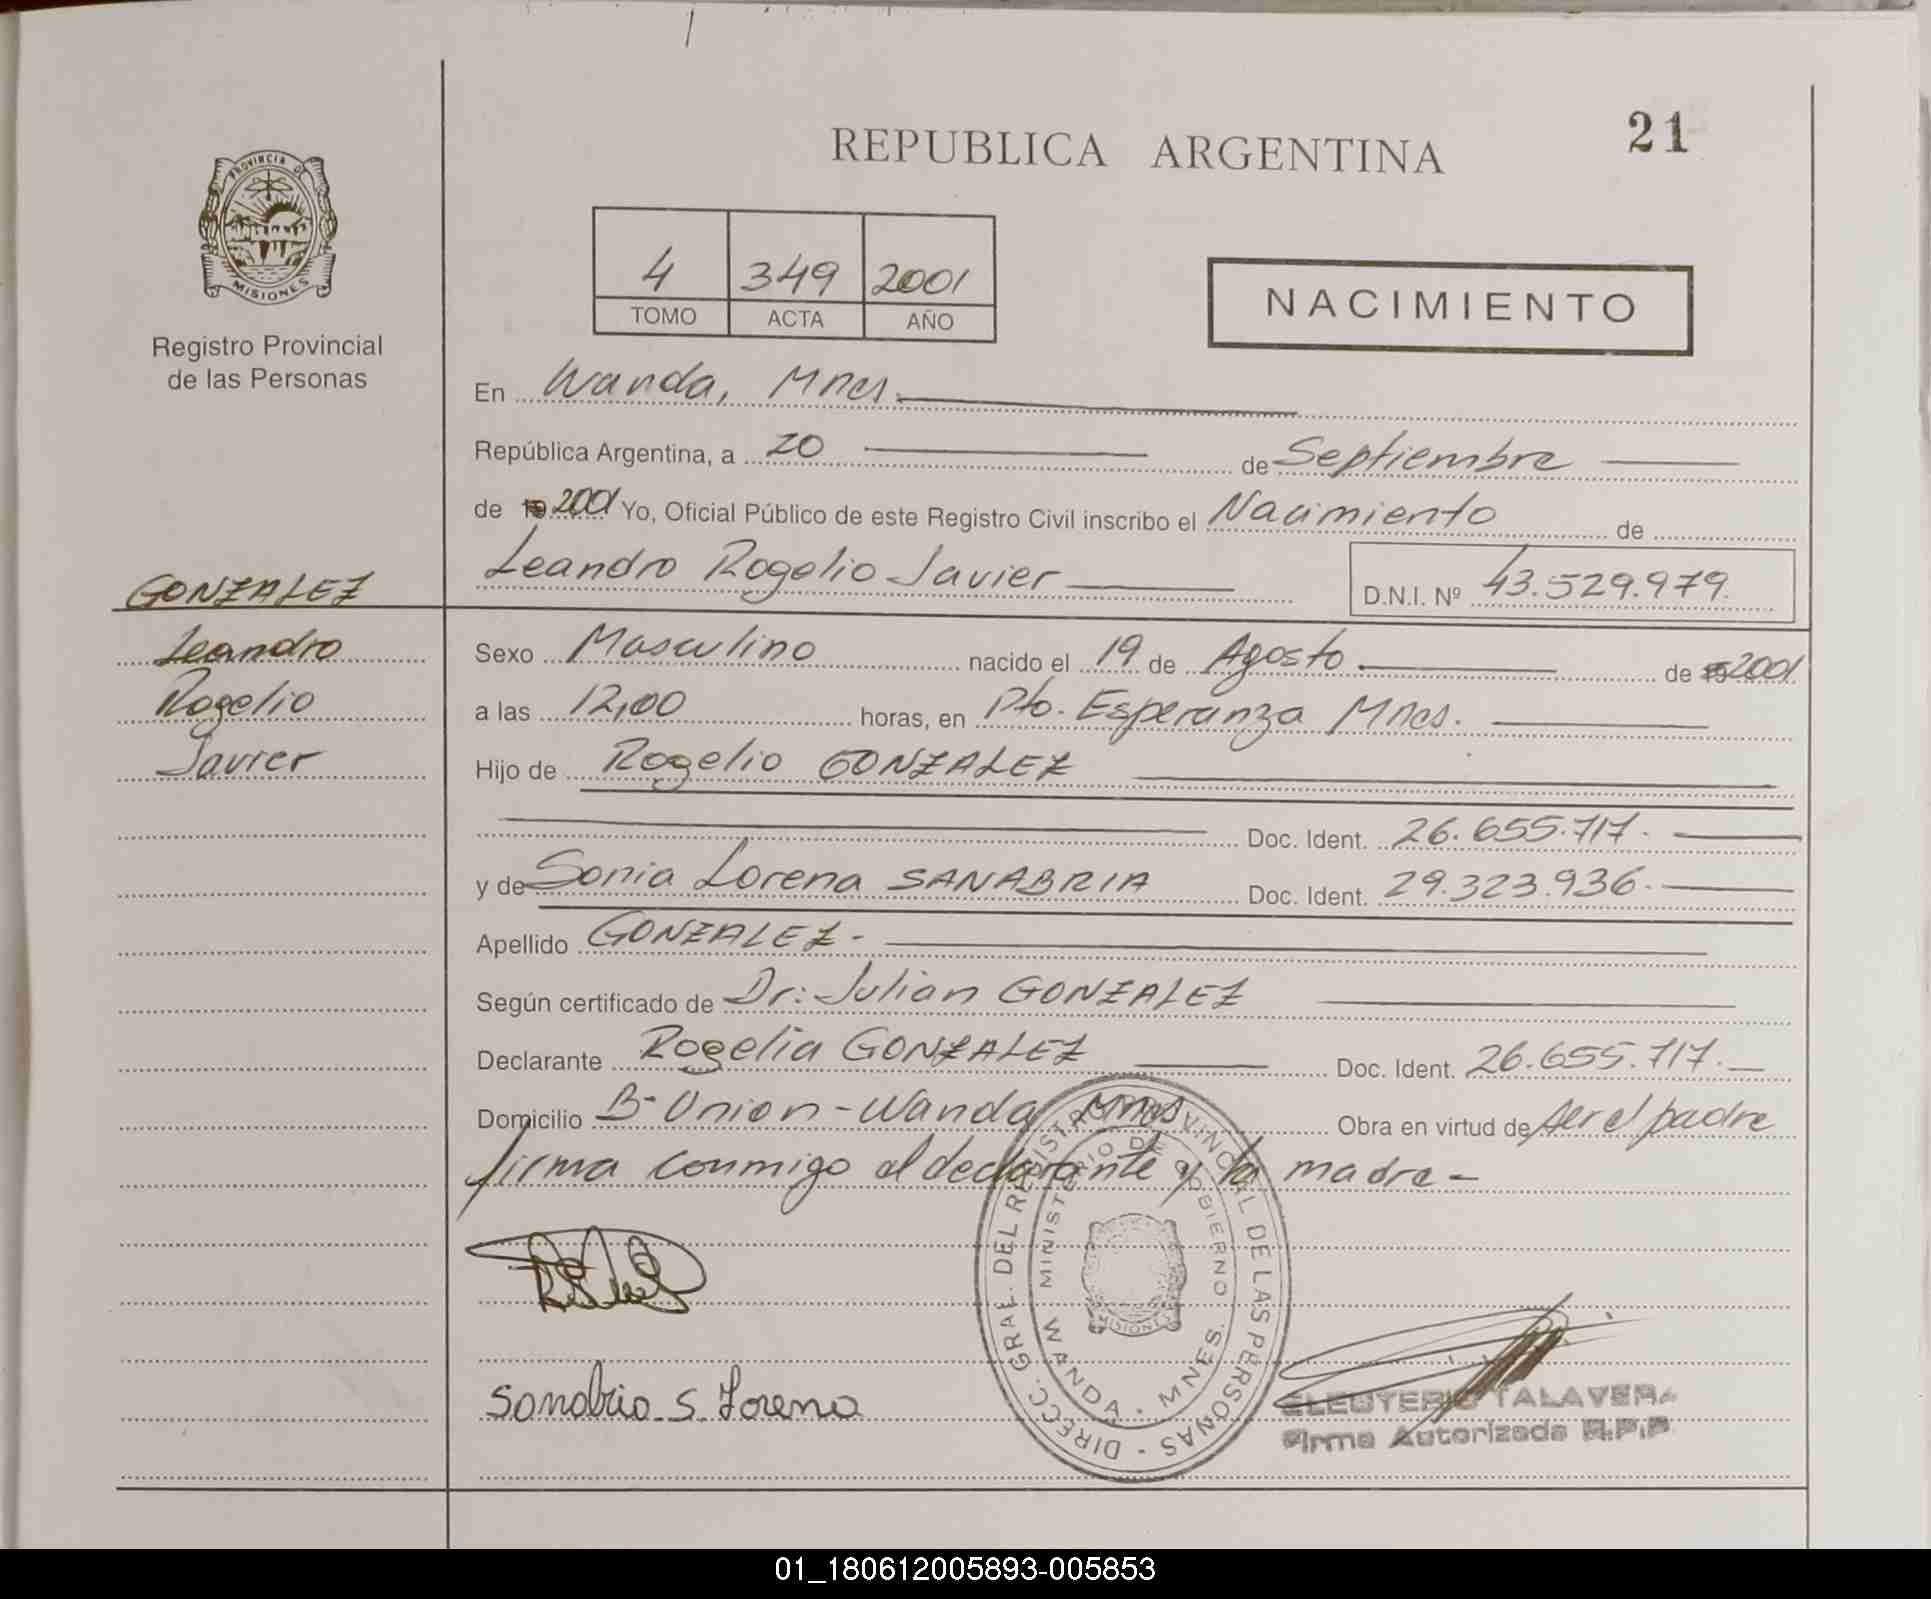 21
REPUBLICA ARGENTINA
PROVINCIA DE
MISIONES
Registro Provincial
de las Personas
4 349 2001
TOMO ACTA AÑO
NACIMIENTO
En Wanda, Mnes.
República Argentina, a 20 de Septiembre
de 19 2001 Yo, Oficial Público de este Registro Civil inscribo el Nacimiento de
Leandro Rogelio Javier D.N.I. Nº 43.529.979.
GONZALEZ
Leandro
Rogelio
Javier
Sexo Masculino nacido el 19 de Agosto de 19 2001
a las 12,00 horas, en Pto. Esperanza Mnes.
Hijo de Rogelio GONZALEZ
Doc. Ident. 26.655.717.
y de Sonia Lorena SANABRIA Doc. Ident. 29.323.936.
Apellido GONZALEZ.-
Según certificado de Dr: Julian GONZALEZ
Declarante Rogelio GONZALEZ Doc. Ident. 26.655.717.
Domicilio Bº Union - Wanda Mnes Obra en virtud de Ser el padre
firma conmigo el declarante y la madre -
DIRECC. GRAL. DEL REGISTRO PROVINCIAL DE LAS PERSONAS -
MINISTERIO DE GOBIERNO
WANDA - MNES.
MISIONES
Sanabria S. Lorena
ELEUTERIO TALAVERA
Firma Autorizada R.P.P.
01_180612005893-005853